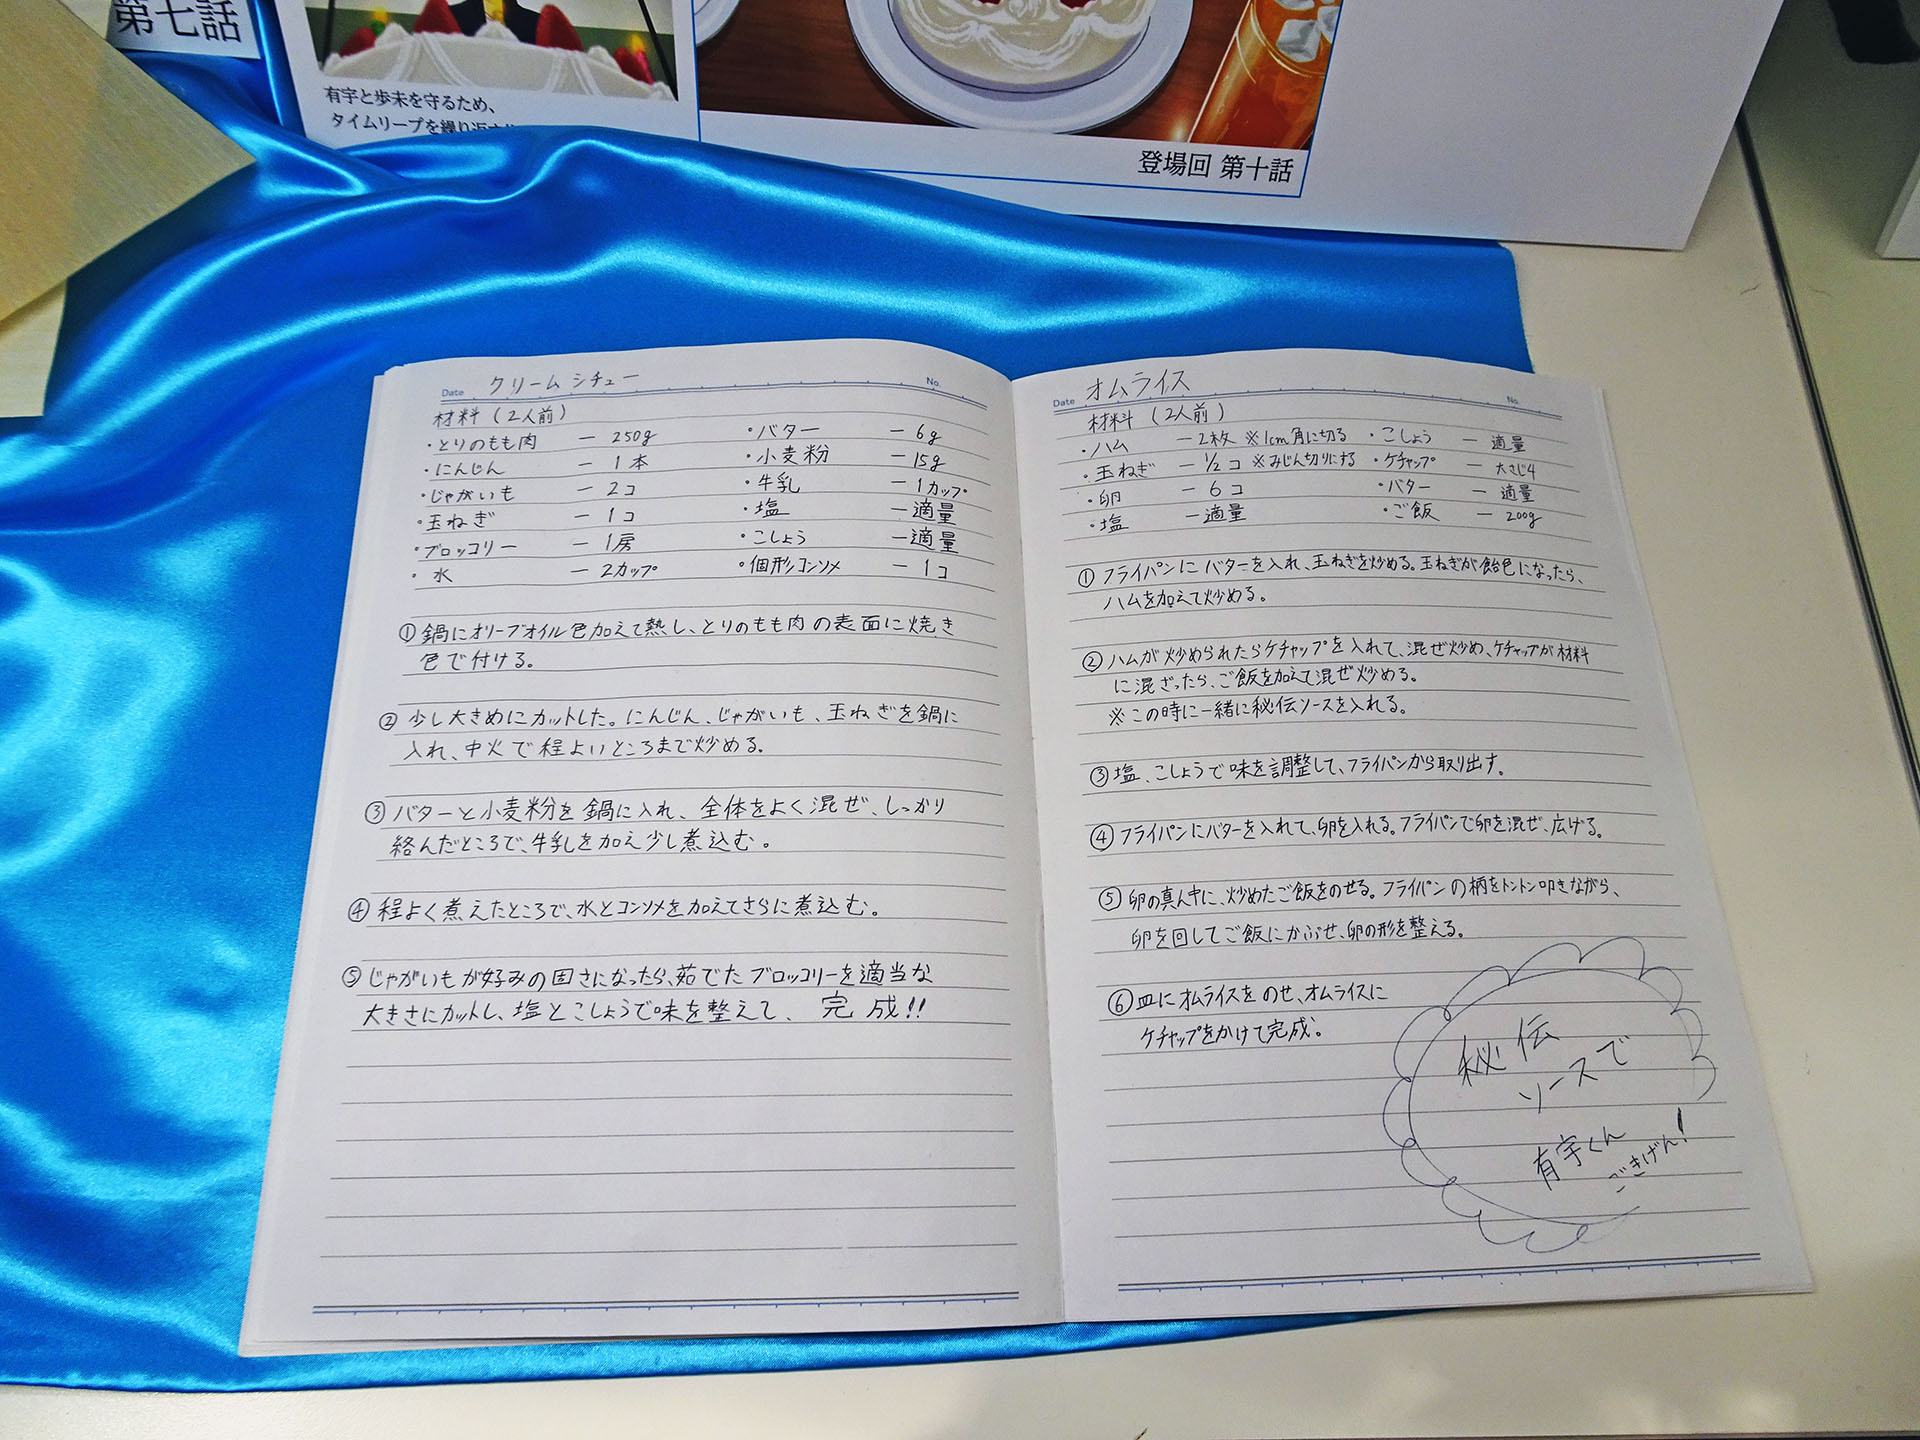 第七話
有宇と歩未を守るため、
タイムリープを繰り返す
登場回 第十話
Date クリームシチュー No.
材料(2人前)
・とりのもも肉 － 250g ・バター － 6g
・にんじん － 1本 ・小麦粉 － 15g
・じゃがいも － 2コ ・牛乳 － 1カップ
・玉ねぎ － 1コ ・塩 － 適量
・ブロッコリー － 1房 ・こしょう － 適量
・水 － 2カップ ・個形コンソメ － 1コ
① 鍋にオリーブオイル色加えて熱し、とりのもも肉の表面に焼き
色で付ける。
② 少し大きめにカットした。にんじん、じゃがいも、玉ねぎを鍋に
入れ、中火で程よいところまで炒める。
③ バターと小麦粉を鍋に入れ、全体をよく混ぜ、しっかり
絡んだところで、牛乳を加え少し煮込む。
④ 程よく煮えたところで、水とコンソメを加えてさらに煮込む。
⑤ じゃがいもが好みの固さになったら、茹でたブロッコリーを適当な
大きさにカットし、塩とこしょうで味を整えて、完成!!
Date オムライス No.
材料(2人前)
・ハム － 2枚 ※1cm角に切る ・こしょう － 適量
・玉ねぎ － 1/2コ ※みじん切りにする ・ケチャップ － 大さじ4
・卵 － 6コ ・バター － 適量
・塩 － 適量 ・ご飯 － 200g
① フライパンにバターを入れ、玉ねぎを炒める。玉ねぎが飴色になったら、
ハムを加えて炒める。
② ハムが炒められたらケチャップを入れて、混ぜ炒め、ケチャップが材料
に混ざったら、ご飯を加えて混ぜ炒める。
※この時に一緒に秘伝ソースを入れる。
③ 塩、こしょうで味を調整して、フライパンから取り出す。
④ フライパンにバターを入れて、卵を入れる。フライパンで卵を混ぜ、広げる。
⑤ 卵の真ん中に、炒めたご飯をのせる。フライパンの柄をトントン叩きながら、
卵を回してご飯にかぶせ、卵の形を整える。
⑥ 皿にオムライスをのせ、オムライスに
ケチャップをかけて完成。
秘伝
ソースで
有宇くん
ごきげん!